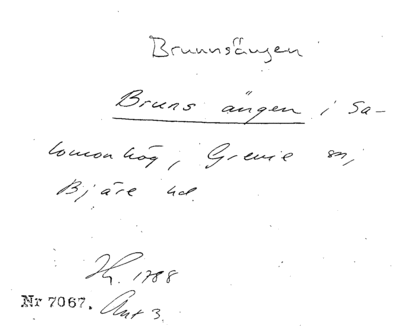 Brunnsängen
Bruns ängen i Sa-
lomonhög, Grevie sn,
Bjäre hd.
1788
Nr 7067. Ant 3.